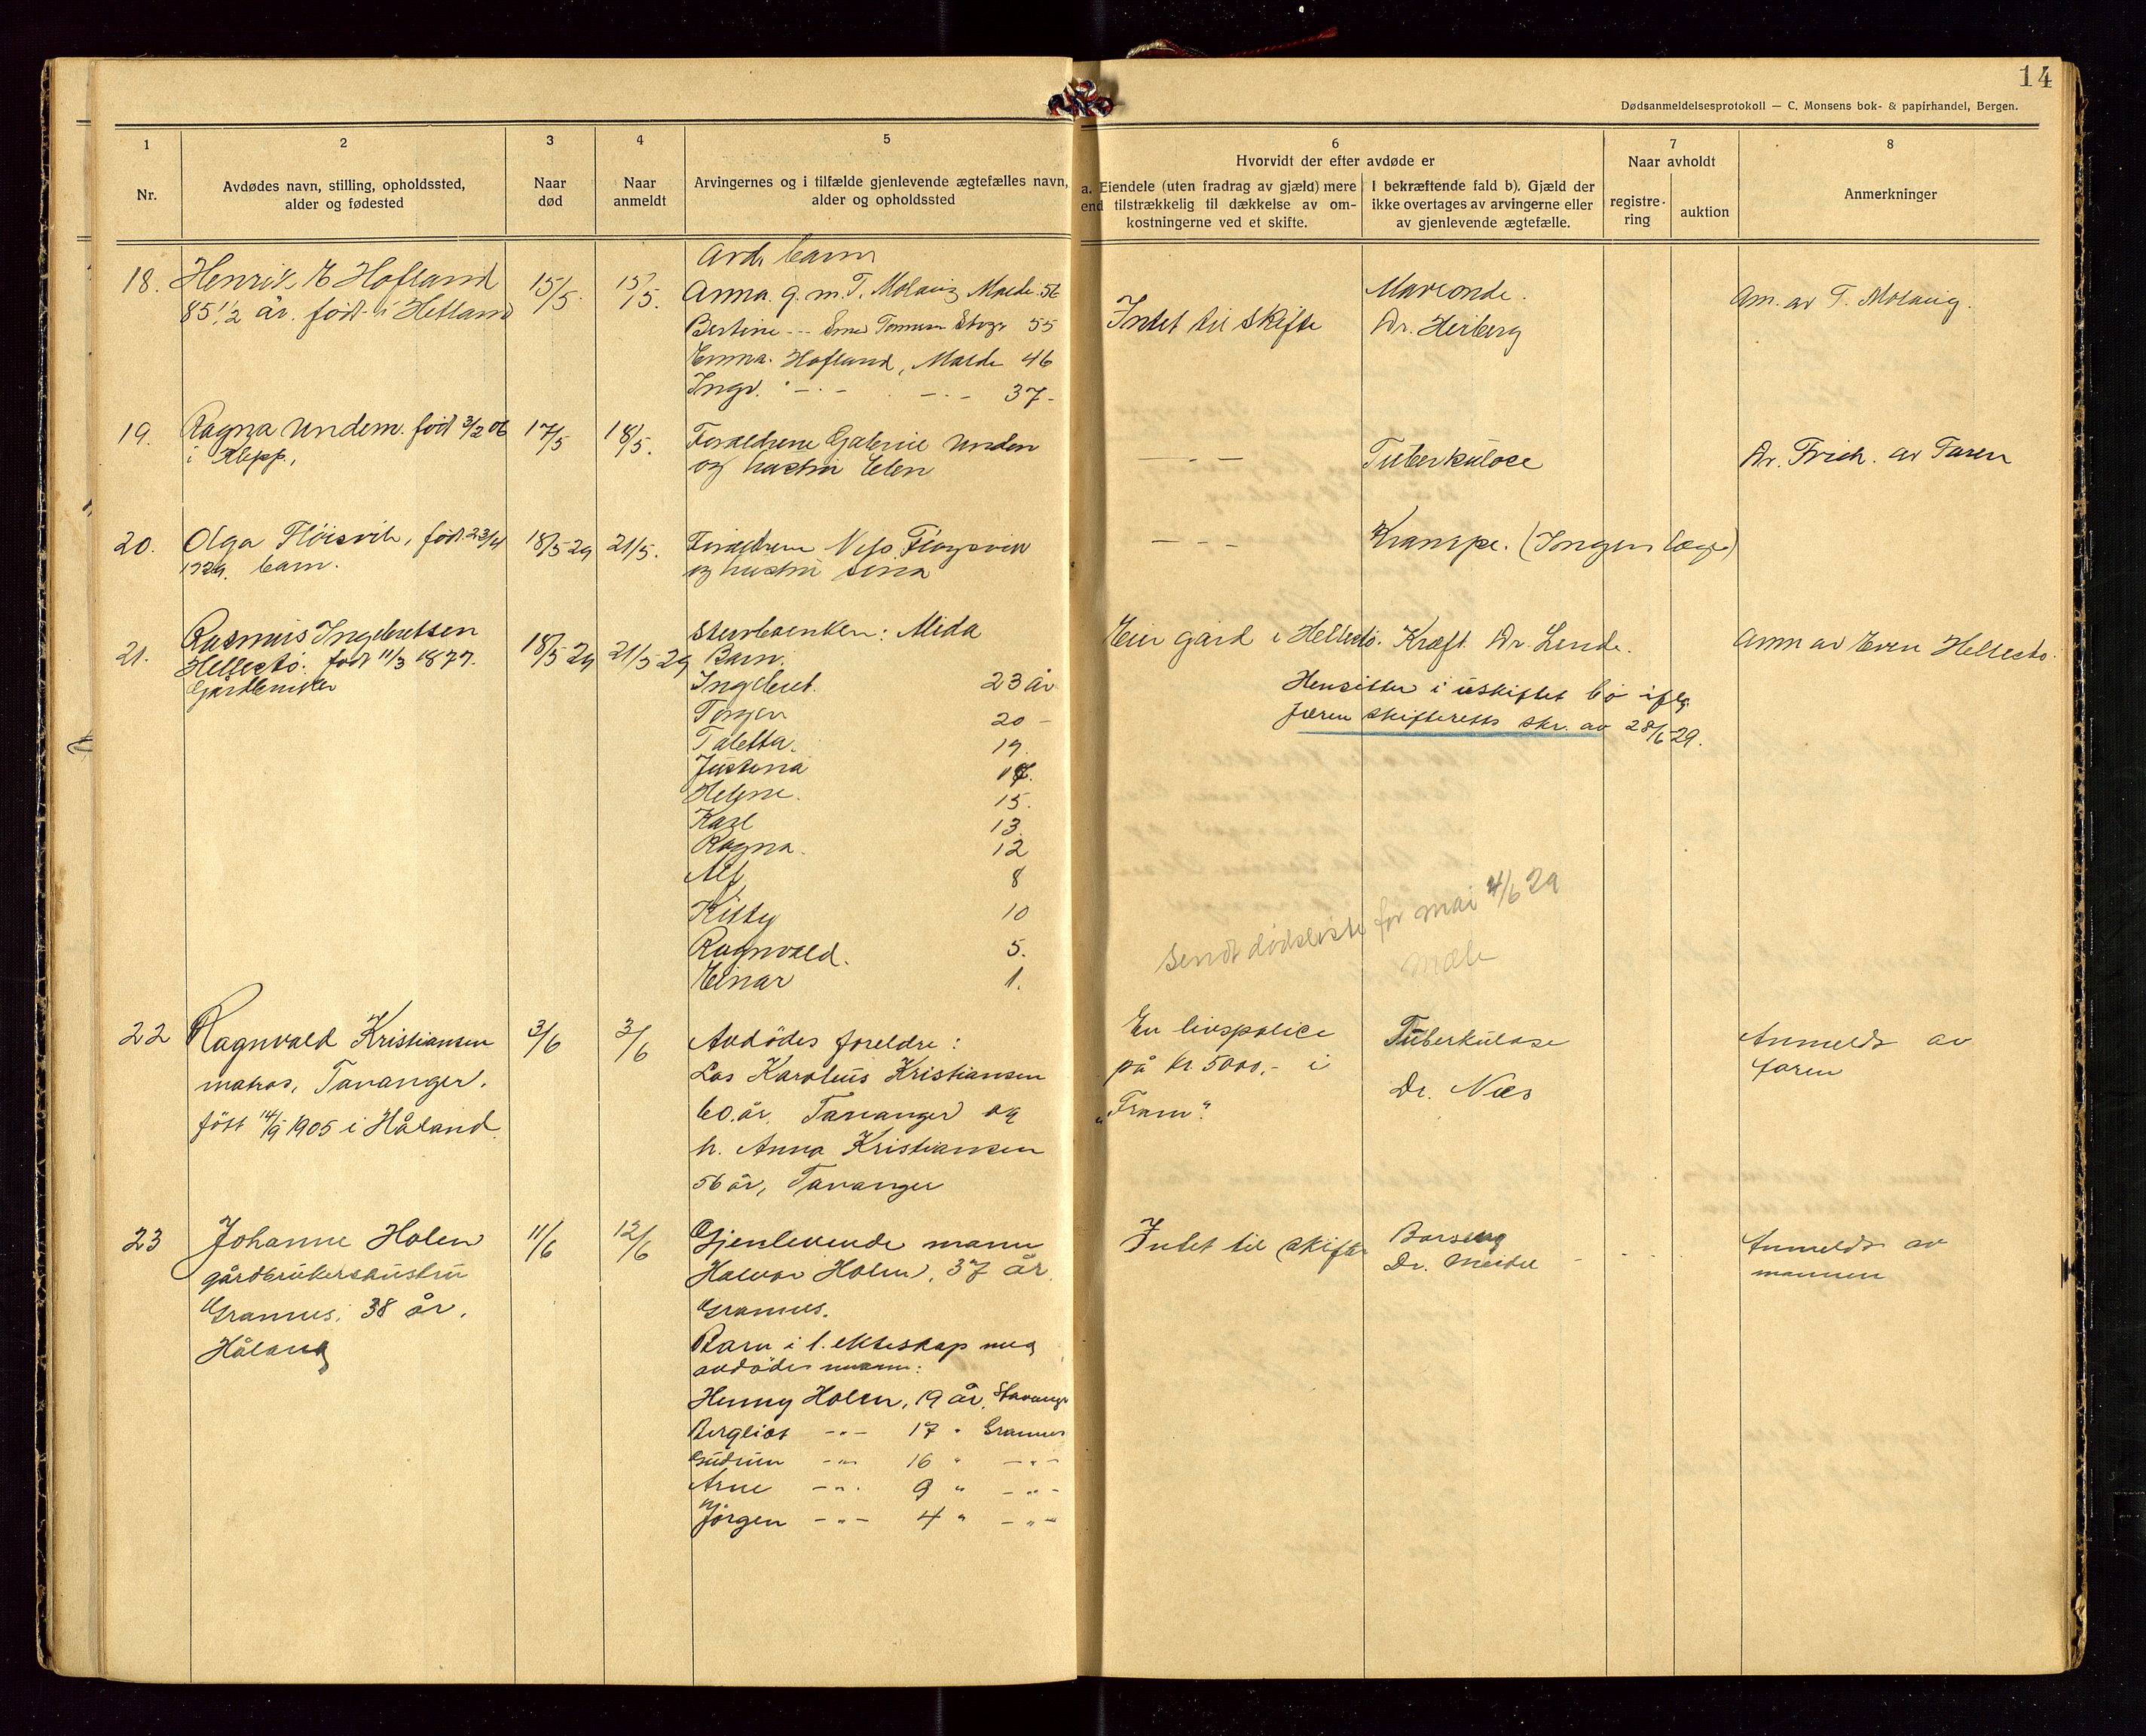 14
Dødsanmeldelsesprotokoll — C. Monsens bok- & papirhandel, Bergen.
1
2
3
4
5
6
7
8
Nr.
Avdødes navn, stilling, opholdssted,
alder og fødested
Naar
død
Naar
anmeldt
Arvingernes og i tilfælde gjenlevende ægtefælles navn,
alder og opholdssted
Hvorvidt der efter avdøde er
a. Eiendele (uten fradrag av gjæld) mere
end tilstrækkelig til dækkelse av om-
kostningerne ved et skifte.
I bekræftende fald b). Gjæld der
ikke overtages av arvingerne eller
av gjenlevende ægtefælle.
Naar avholdt
registre-
ring
auktion
Anmerkninger
18.
Henrik E Hofland
85 1/2 år. født i Hetland
15/5.
15/5.
Avd. barn
Anna g. m. T. Molaug Malde 56
Bertine
55
Emma Hofland, Malde 46
Ingv. 37-
Intet til skifte
Dr. Heiberg
Am. av T. Molaug.
19.
Ragna Undem. født 3/2 06
i Klepp.,
17/5
18/5.
Foreldrene Gabriel Undem
og hustru Elen
— - —
Tuberkulose
Dr. Frich. av Faren
20.
Olga Fløisvik, født 23/4
1929. barn.
18/5 29
21/5.
Foreldrene Nils Fløysvik
og hustru
— - -
Krampe. (Ingen læge)
21.
Rasmus Ingebretsen
Hellestø. født 11/3 1877.
Gårdbruker
18/5 29
21/5 29
Barn.
Ingebret. 23 år
Torger 20 -
Taletta. 19.
Justina
Helene. 15.
Karl 13.
Ragna. 12
Alf 8
Kitty 10
Ragnvald. 5.
Einar 1.
Eier gård i Hellestø. Kræft Dr. Lende.
Hensitter i uskiftet bo ifig.
Jæren skifteretts skr. av 28/6 29.
Anm av Even Hellestø.
Sendt dødsliste for mai 4/6 29
22
Ragnvald Kristiansen
matros, Tananger.
født 14/9 1905 i Håland.
3/6
3/6
Avdødes foreldre:
Los Karolius Kristiansen
60 år, Tananger og
h. Anna Kristiansen
56 år, Tananger
En livspolice
på kr 5000,- i
"Fram".
Tuberkulose
Dr. Næs
Anmeldt av
faren
23
Johanne Holen
gårdbrukershustru
Grannes, 38 år.
Håland
11/6
12/6
Gjenlevende mann
Halvor Holen, 37 år
Grannes.
Barn i 1. ekteskap med
avdødes mann:
Henny Holen, 19 år, Stavanger
Bergliot -"- 17 " Grannes
Gudrun -"- 16 " -"-
Arne -"- 9 " -"-
Jørgen -"- 4 " -"-
Intet til skifte
Barseng
Dr. Meidell
Anmeldt av
mannen